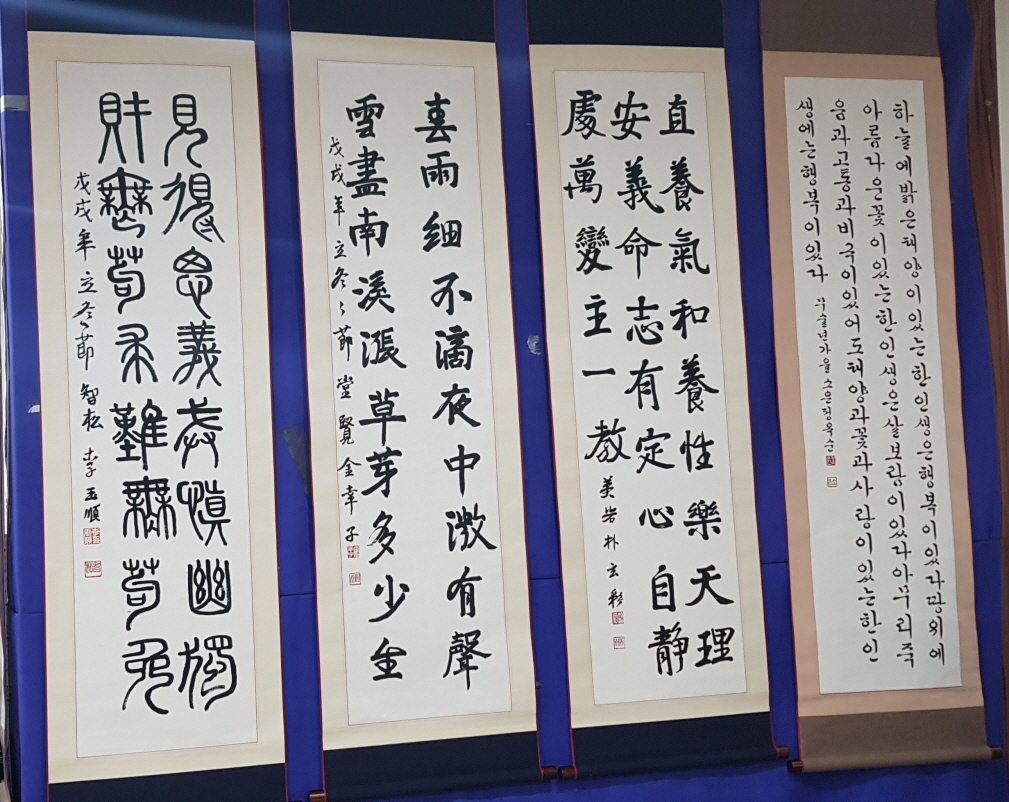 하늘에밝은태양이있는한인생은행복이있다땅위에
아름다운꽃이있는한인생은살보람이있다아무리죽
음과고통과비극이있어도태양과꽃과사랑이있는한인
생에는행복이있다 무술년가을 소은정옥순
直養氣和養性樂天理
安義命志有定心自靜
處萬變主一敎 美岩朴玄彩
春雨細不滴夜中微有聲
雪盡南溪漲草芽多少生
戊戌年立冬之節 堂賢金幸子
見得思義戒愼幽獨
財無苟求難無苟免
戊戌年立冬之節 智松 李玉順